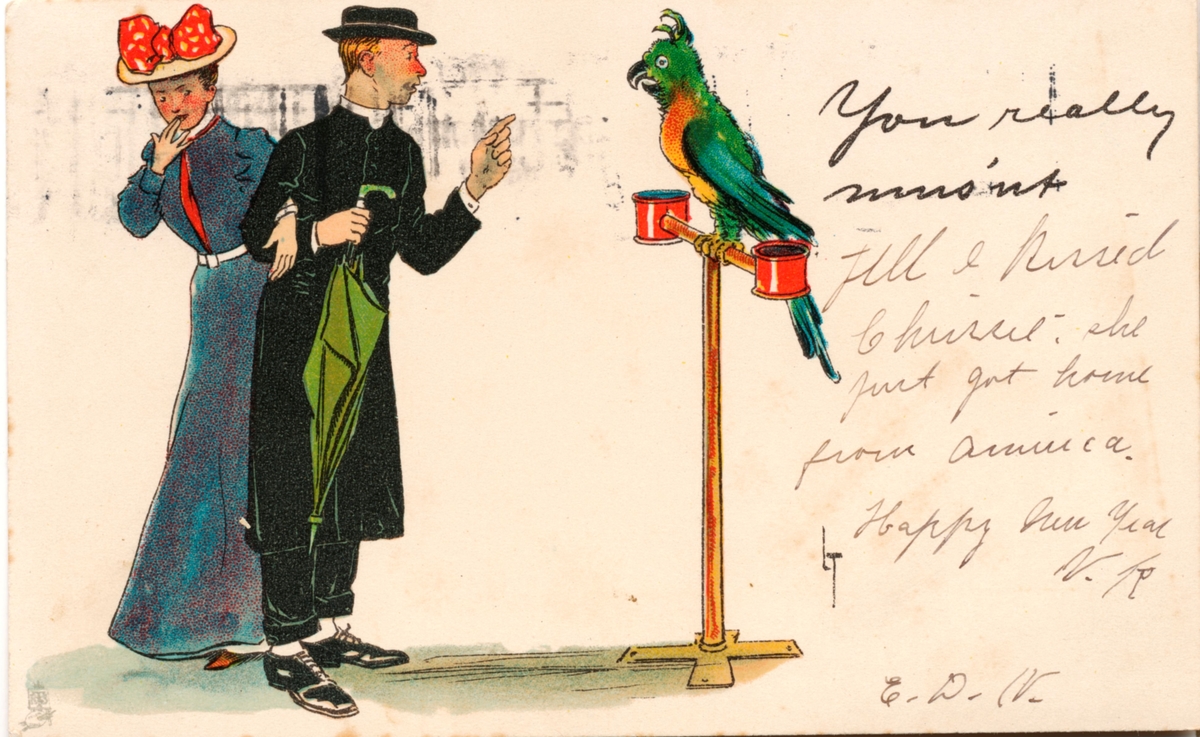 You really
mus'nt
Tell I kissed
Chrissie. she
just got home
from America.
Happy New Year
V. K
LT
E. D. W.